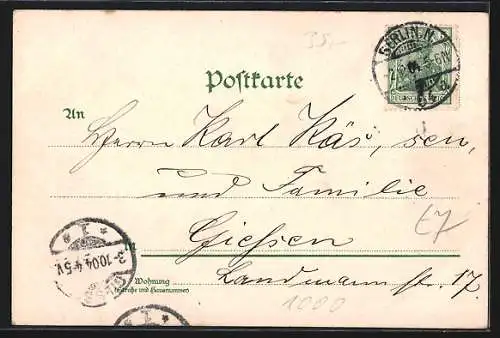 35,-
BERLIN, N.
Postkarte
An
Herrn Karl Käs, sen.
und Familie
in Giessen
3-10 04 4-5 V
Wohnung
(Straße und Hausnummer)
Landmannstr. 17.
1000